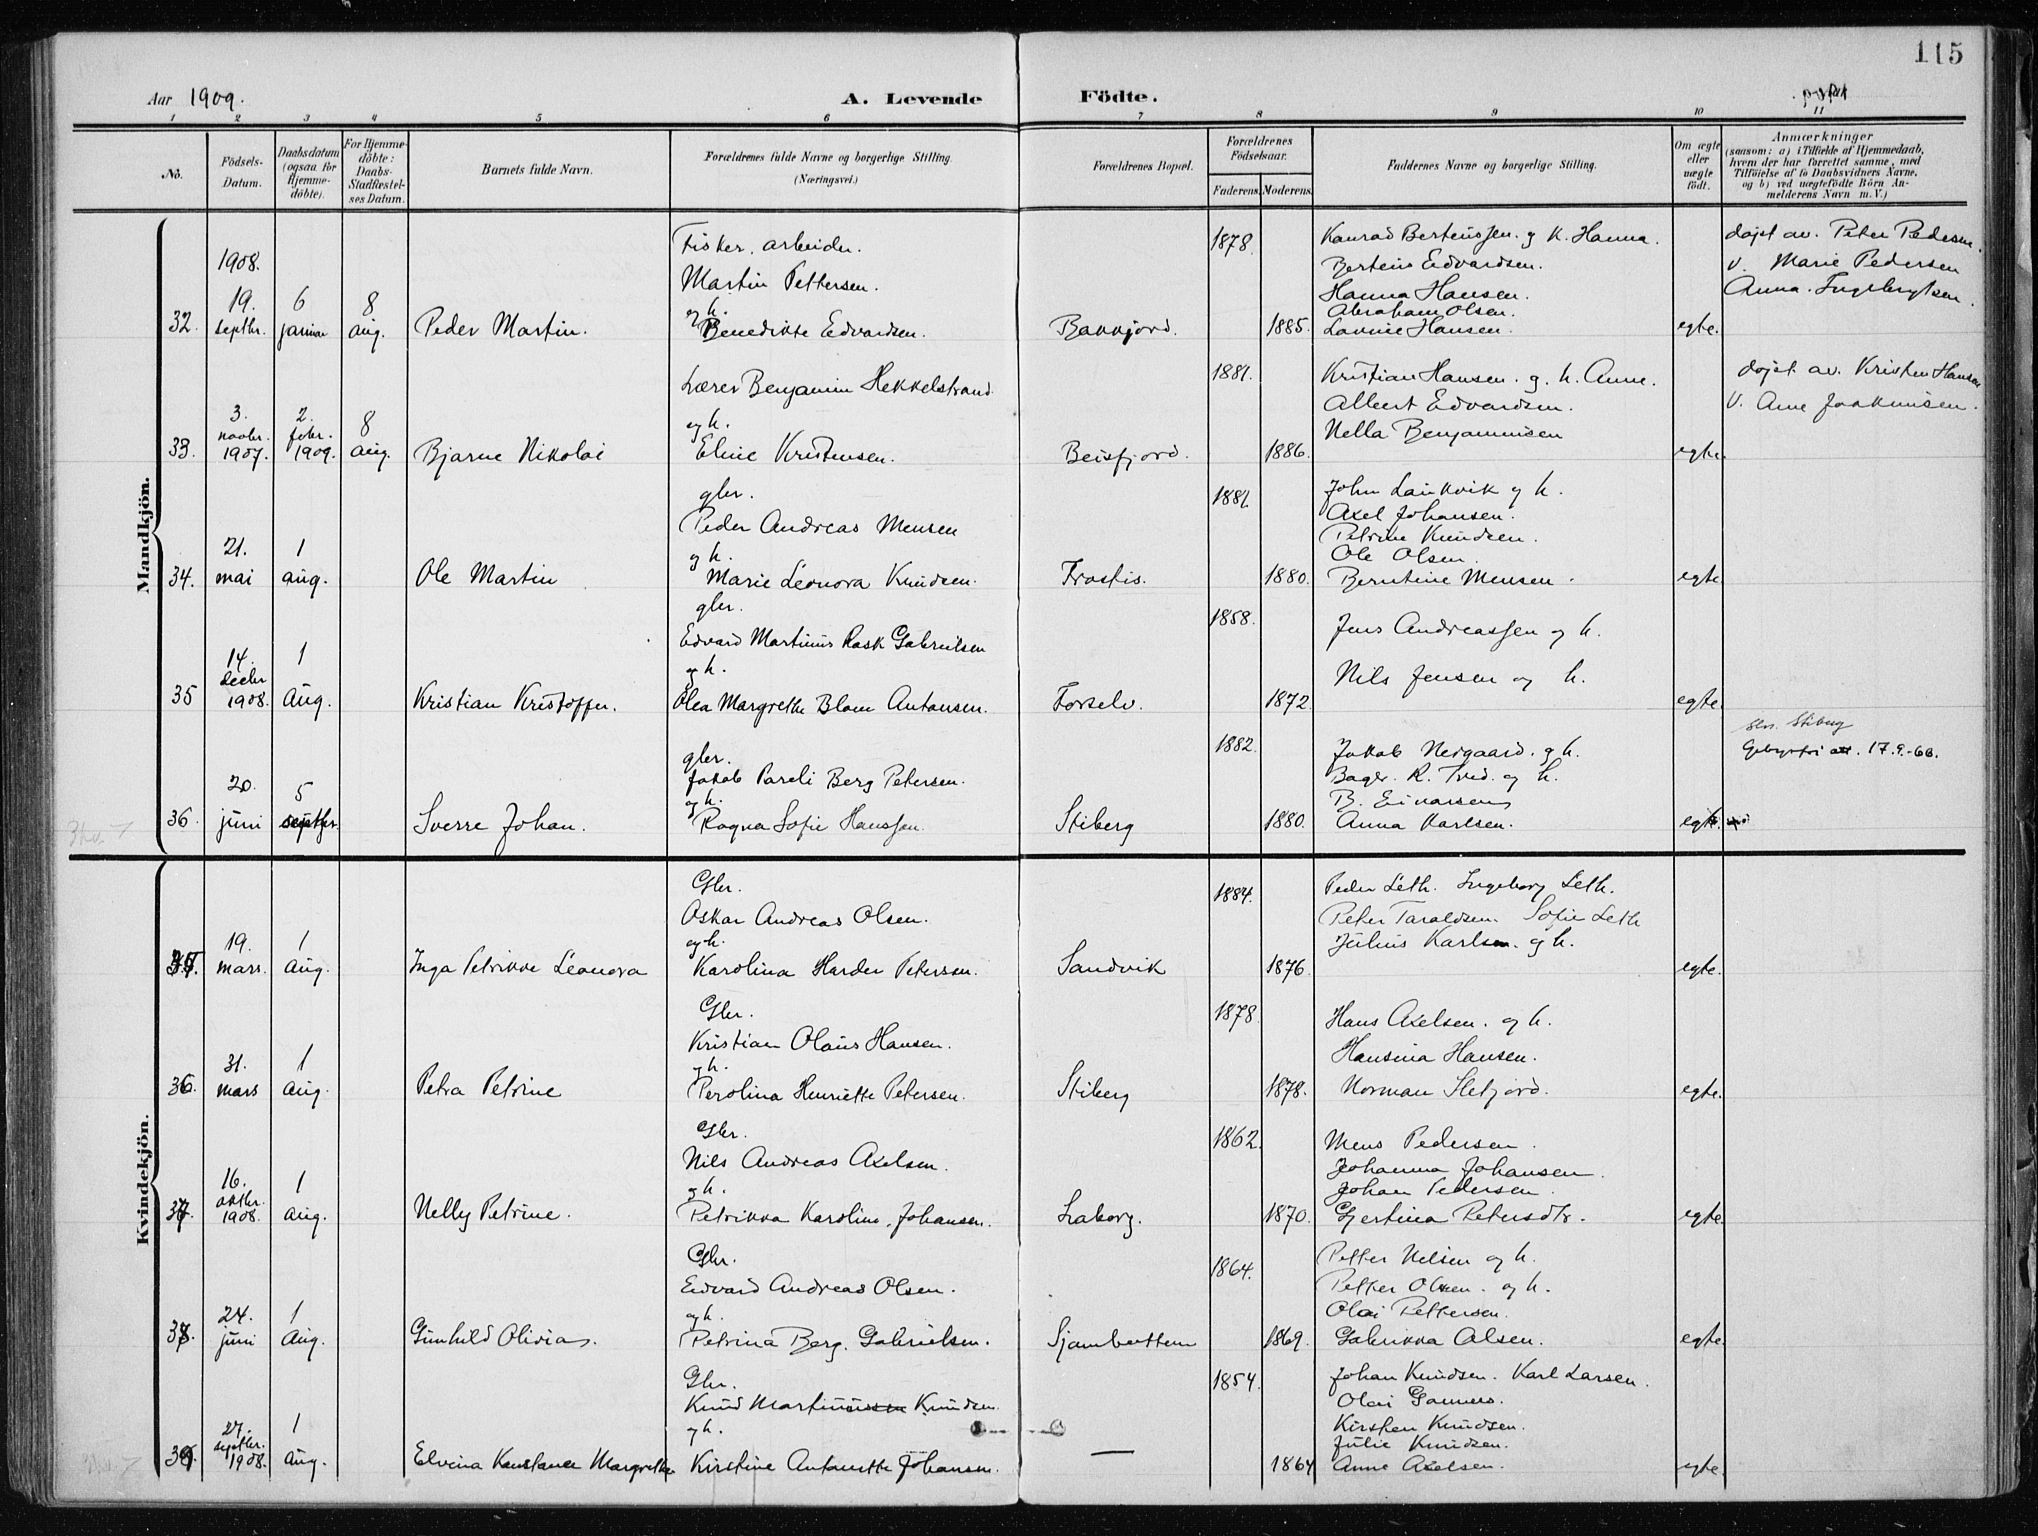 115
Aar 1909.
A. Levende Födte.
1 2 3 4 5 6 7 8 9 10 11
No.
Födsels-Datum.
Daabsdatum (ogsaa for Hjemme-döbte).
For Hjemme-döbte: Daabs-Stadfæstel-ses Datum.
Barnets fulde Navn.
Forældrenes fulde Navne og borgerlige Stilling.
(Næringsvei.)
Forældrenes Bopæl.
Forældrenes Födselsaar.
Faderens. Moderens.
Faddernes Navne og borgerlige Stilling.
Om ægte eller uægte født.
Anmærkninger
(saasom: a) i Tilfælde af Hjemmedaab, hvem der har forrettet samme, med Tilföielse af to Daabsvidners Navne, og b) ved uægtefödte Börn An-melderens Navn m. V.)
Mandkjön.
32. 1908. 19. septbr. 6 januar 8 aug. Peder Martin.
Fisker. arbeider.
Martin Pettersen.
og h.
Benedikte Edvardsen.
Bakkjord. 1878. 1885.
Konrad Bertenssen. og k. Hanna.
Berteus Edvardsen.
Hanna Hansen.
Abraham Olsen.
Lovise Hansen.
egte.
døpt av. Peter Pedersen
v. Marie Pedersen
Anna. Ingebrigtsen.
33. 3. novbr. 1907. 2. febr. 1909. 8 aug. Bjarne Nikolai
Lærer Benjamin Hekkelstrand
og h.
Eline Kristensen.
Beisfjord. 1881. 1886.
Kristian Hansen. og h. Anne.
Albert Edvardsen.
Nella Benjaminsen
egte.
døpt. av. Kristen Hansen
v. Ane Joakimsen.
34. 21. mai 1 aug. Ole Martin
gbr.
Peder Andreas Mensen
og h.
Marie Leonora Knudsen.
Frostis. 1881 1880.
John Laukvik og h.
Axel Johansen.
Petrine Knudsen.
Ole Olsen.
Berntine Mensen.
egte
35 14. decbr 1908. 1 Aug. Kristian Kristoffer.
gbr.
Edvard Martinus Rask Gabrielsen
og h.
Olea Margrethe Blom Antonsen.
Forselv. 1858. 1872
Jens Andreassen og h.
Nils Jensen og h.
egte.
36. 20. juni 5 septbr. Sverre Johan.
gbr.
Jakob Pareli Berg Petersen.
og h.
Ragna Sofie Hanssen.
Stiberg 1882. 1880.
Jakob Neigaard. og h.
Bager. R. Tved. og h.
B. Eivarsen
Anna Karlsen.
egte.
sln. Stiberg
Gebyrfri att. 17.9.-66.
Kvindekjön.
35. 19. mars. 1 Aug. Inga Petrikke Leonora
Gbr.
Oskar Andreas Olsen.
og h.
Karolina Harder Petersen.
Sandvik 1884. 1876
Peder Leth. Ingeborg Leth.
Peter Taraldsen. Sofie Leth
Julius Karlsen. og h.
egte.
36. 31. mars 1 aug. Petra Petrine
Gbr.
Kristian Olaus Hansen.
og h.
Perolina Henriette Petersen.
Stiberg 1878. 1878.
Hans Axelsen. og h.
Hansina Hansen.
Norman Sletjord.
egte.
37. 16. oktbr. 1908. 1 aug. Nelly Petrine.
Gbr.
Nils Andreas Axelsen.
og h.
Petrikka Karoline. Johansen.
Laberg. 1862. 1870.
Mens Pedersen.
Johanna Johansen.
Johan Pedersen.
Gjertina Petersdtr.
egte
38. 24. juni 1 Aug. Gunhild Olivia.
Gbr.
Edvard Andreas Olsen.
og h.
Petrina Berg. Gabrielsen.
Sjambotten 1864. 1869.
Petter Nilsen og h.
Petter Olsen. og h.
Olai Pettersen.
Gabrikka Olsen.
egte.
39. 27. septbr. 1908. 1 Aug. Elvina Konstanse Margrethe
Gbr.
Knud Martinussen Knudsen.
og h.
Kirstine Antonette Johansen.
— 1854. 1864
Johan Knudsen. Karl Larsen.
Olai
Kirsten Knudsen.
Julie Knudsen.
Anne Axelsen.
egte.